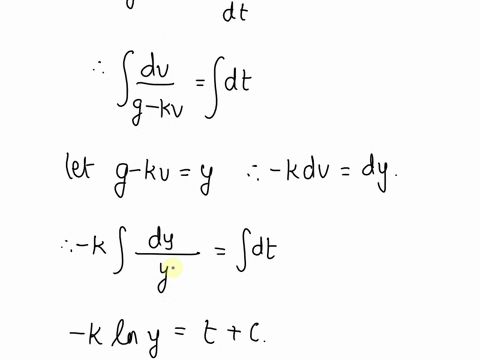 dt
∴ ∫ dv/(g-kv) = ∫ dt
let g-kv = y ∴ -kdv = dy.
∴ -k ∫ dy/y = ∫ dt
-k ln y = t + c.